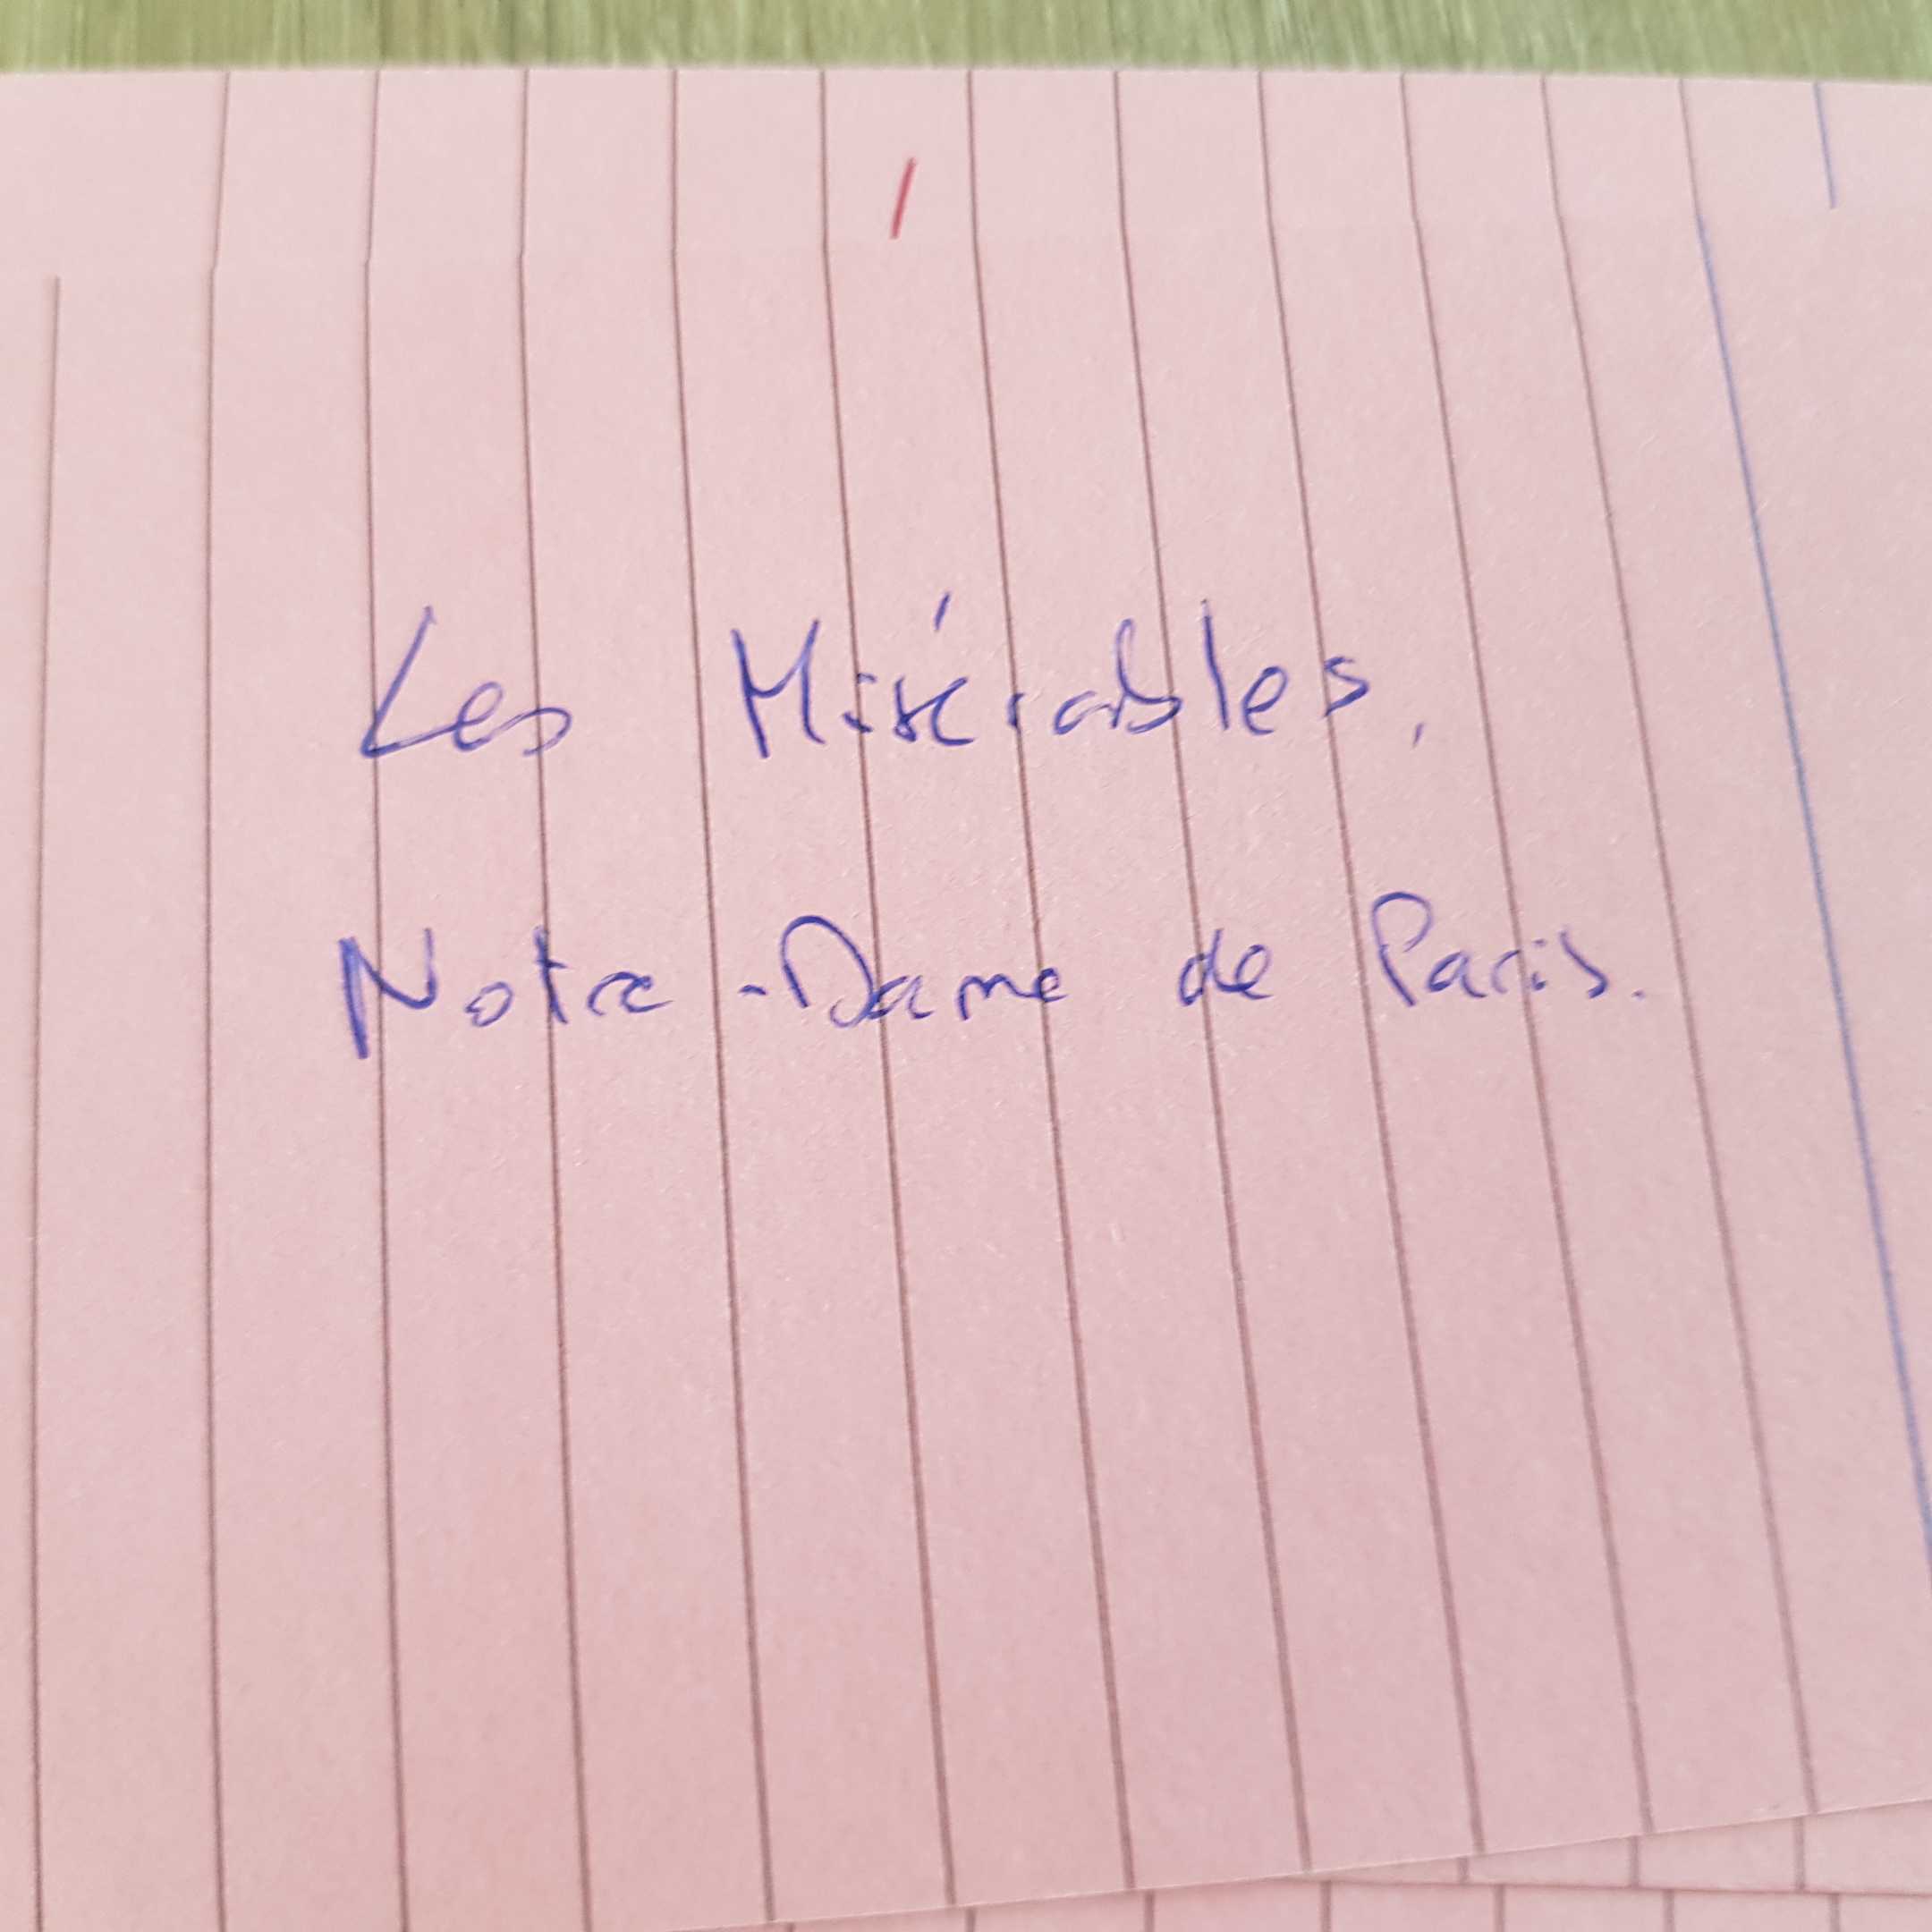 Les Misérables,
Notre-Dame de Paris.